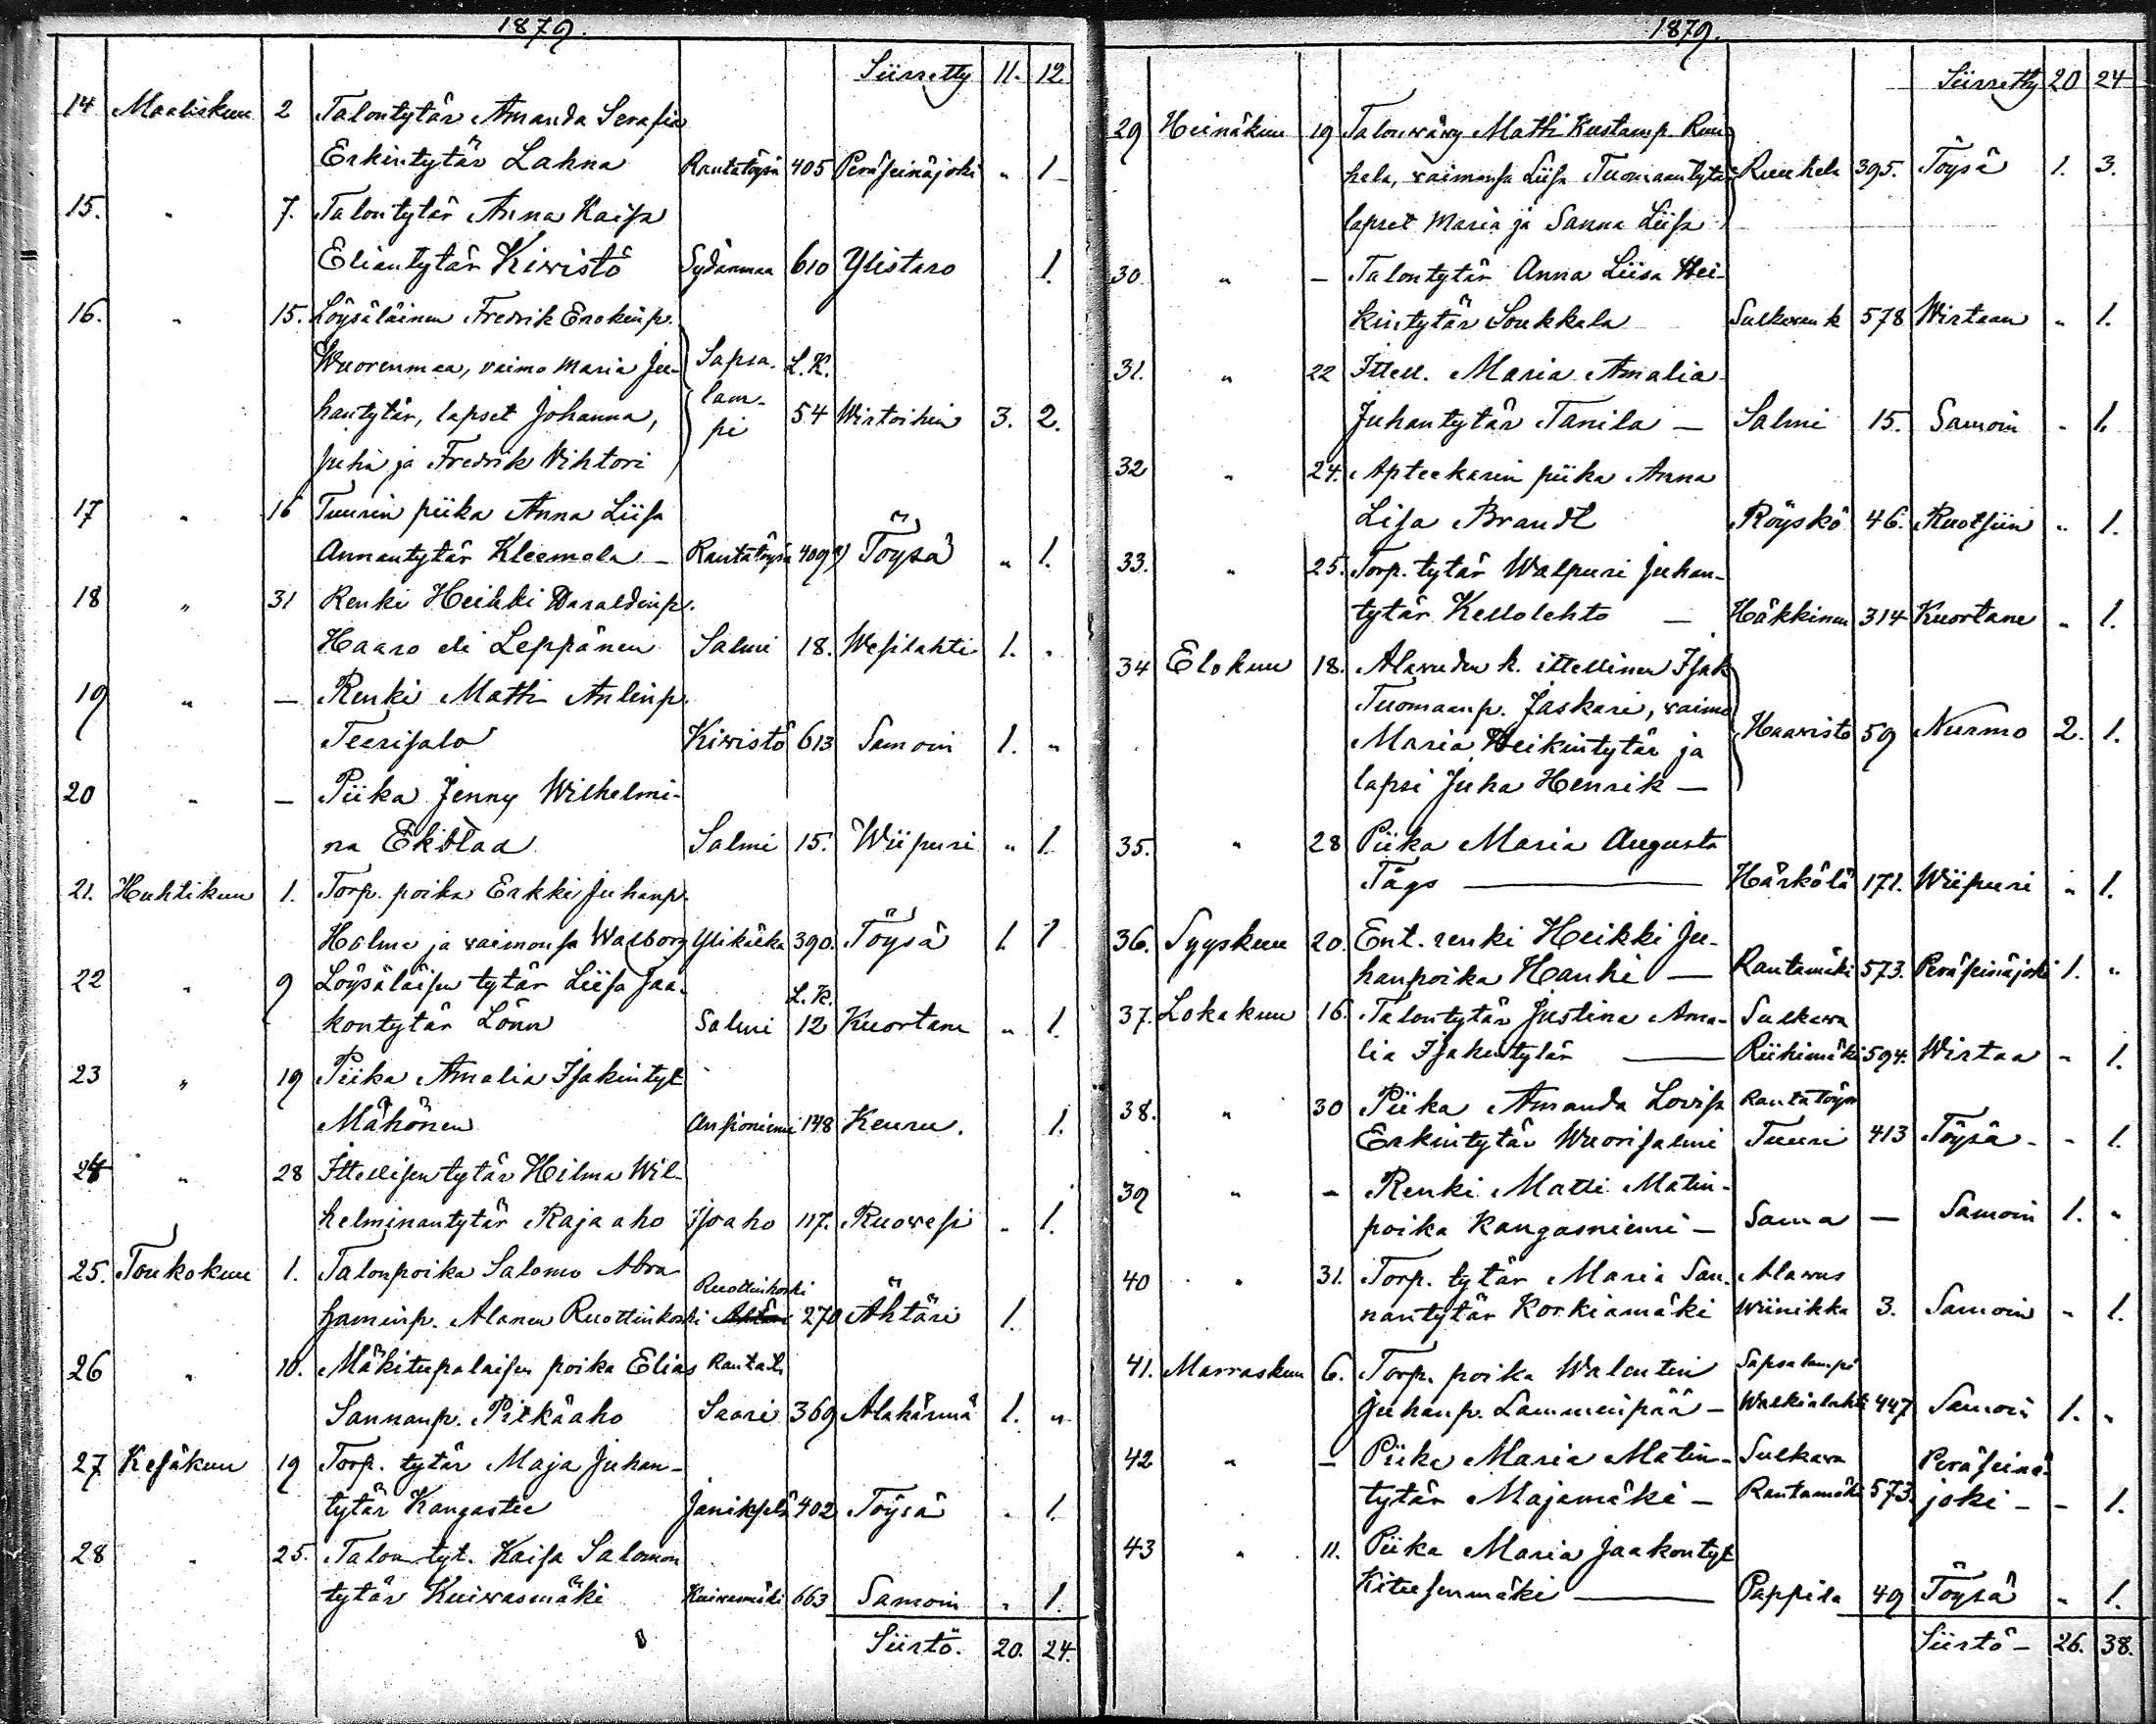 1879.
Siirretty 11. 12.
14 Maaliskuu 2 Talontytär Amanda Serafia
Erkintytär Lahna Rantatöysä 405 Peräseinäjoki " 1
15. " 7. Talontytär Anna Kaisa
Eliantytär Kiwistö Sydänmaa 610 Ylistaro 1.
16. " 15. Löysäläinen Fredrik Enokinp.
Wuorenmaa, vaimo Maria Ju- Sapsa- L.K.
hantytär, lapset Johanna, lam- 54 Wirtoihin 3. 2.
Juha ja Fredrik Vihtori pi
17 " 16 Tuurin piika Anna Liisa
Annantytär Kleemola — Rantatöysä 409 Töysä " 1.
18 " 31 Renki Heikki Waraldinp.
Haaro eli Leppänen Salmi 18. Wesilahti 1. "
19 " — Renki Matti Antinp.
Teerisalo Kiwistö 613 Samoin 1. "
20 " — Piika Jenny Wilhelmi-
na Salmi 15. Wiipuri " 1.
21. Huhtikuu 1. Torp. poika Erkki Juhanp.
Holma ja vaimonsa Walborg Ylikätkä 390. Töysä 1. 1
22 " 9 Löysäläisen tytär Liisa Jaa- L.K.
kontytär Lönn Salmi 12 Kuortane " 1.
23 " 19 Piika Amalia Isakintyt
Mähönen Asponiemi 148 Keuru. 1.
24 " 28 Ittellisen tytär Hilma Wil-
helminantytär Rajaaho Isoaho 117. Ruowesi " 1.
25. Toukokuu 1. Talonpoika Salomo Abra- Ruottinkoski
haminp. Alanen Ruottinkoski 270 Ähtäri 1.
26 " 10. Mäkitupalaisen poika Elias Rantat.
Sannanp. Pitkäaho Saari 369 Alahärmä 1. "
27 Kesäkuu 19 Torp. tytär Maja Juhan-
tytär Kangastie 402 Töysä " 1.
28 " 25. Talon tyt. Kaisa Salomon
tytär Kuiwasmäki Kuiwasmäki 663 Samoin " 1.
Siirtö. 20. 24.
1879.
Siirretty 20 24
29 Heinäkuu 19 Talonwäwy Matti Kustaanp. Ruu-
hela, vaimonsa Liisa Tuomaantytär Ruuhela 395. Töysä 1. 3.
lapset Maria ja Sanna Liisa
30 " — Talontytär Anna Liisa Hei-
kintytär Soukkala Sulkawan k 578 Wirtaan " 1.
31. " 22 Ittell. Maria Amalia
Juhantytär Tanila — Salmi 15. Samoin " 1.
32 " 24. Apteekarin piika Anna
Lisa Brandt Röyskö 46. Ruotsiin " 1.
33. " 25. Torp. tytär Walpuri Juhan-
tytär Kellolehto — Häkkinen 314 Kuortane " 1.
34 Elokuu 18. Alawuden k. ittellinen Isak
Tuomaanp. Jaskari, vaimo
Maria Heikintytär ja Haawisto 59 Nurmo 2. 1.
lapsi Juha Henrik —
35. " 28 Piika Maria Augusta
Tågs — Härkölä 171. Wiipuri " 1.
36. Syyskuu 20. Ent. renki Heikki Ju-
hanpoika Hanhi — Rantamäki 573. Peräseinäjoki 1. "
37. Lokakuu 16. Talontytär Justina Ama- Sulkawa
lia Isakintytär — Riihimäki 594. Wirtaa " 1.
38. " 30 Piika Amanda Lovisa Rantatöysä
Erkintytär Wuorisalmi Tuuri 413 Töysä - " 1.
39 " " Renki Matti Matin-
poika Kangasniemi — Sama — Samoin 1. "
40 " 31. Torp. tytär Maria San- Alawus
nantytär Korkiamäki Wiinikka 3. Samoin " 1.
41. Marraskuu 6. Torp. poika Walentin Sapsalampi
Juhanp. Lamminpää — Walkialahti 447 Samoin 1. "
42 " — Piika Maria Matin- Sulkawa Peräseinä-
tytär Majamäki — Rantamäki 573. joki — " 1.
43 " 11. Piika Maria Jaakontyt
Kiteesenmäki — Pappila 49 Töysä " 1.
Siirtö — 26. 38.